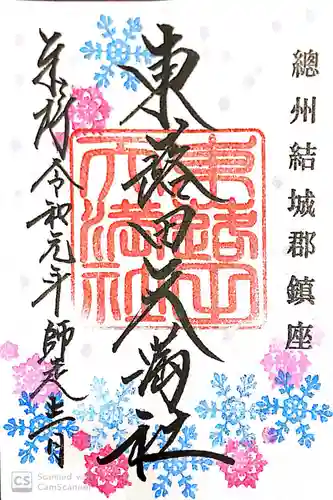 總州結城郡鎮座
東蕗田天満社
令和元年師走吉日
CS Scanned with
CamScanner